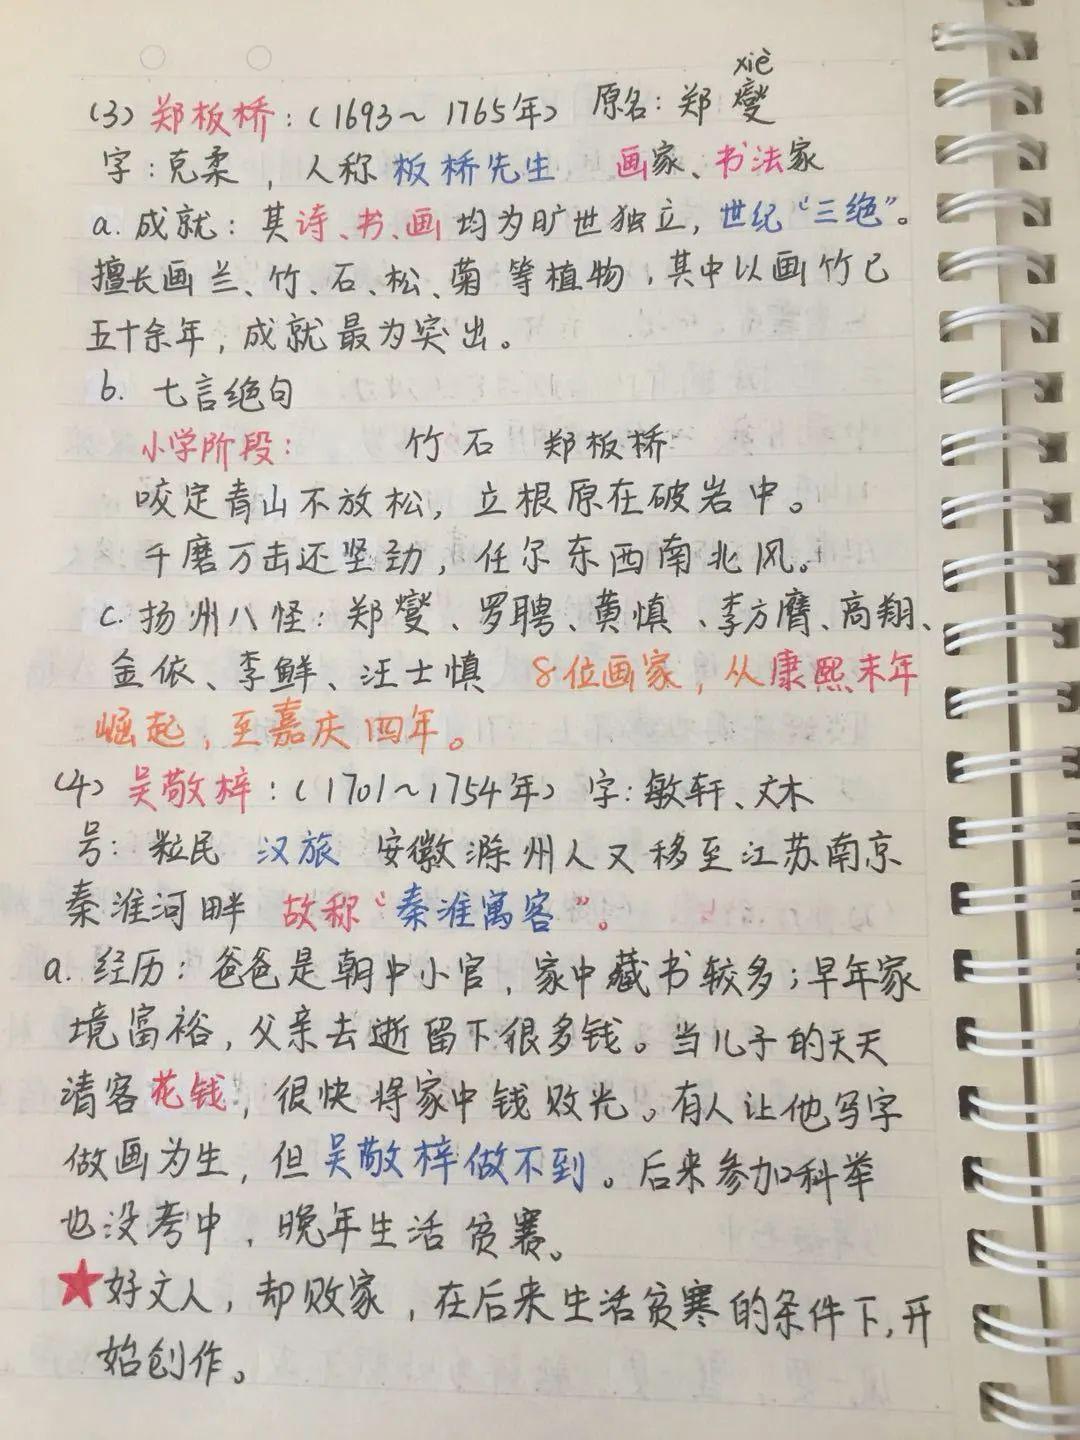 xiè
(3) 郑板桥：(1693～1765年) 原名：郑燮
字：克柔，人称板桥先生 画家、书法家
a. 成就：其诗、书、画均为旷世独立，世纪“三绝”。
擅长画兰、竹、石、松、菊等植物，其中以画竹已
五十余年，成就最为突出。
b. 七言绝句
小学阶段： 竹石 郑板桥
咬定青山不放松，立根原在破岩中。
千磨万击还坚劲，任尔东西南北风。
c. 扬州八怪：郑燮、罗聘、黄慎、李方膺、高翔、
金依、李鲜、汪士慎 8位画家，从康熙末年
崛起，至嘉庆四年。
(4) 吴敬梓：(1701～1754年) 字：敏轩、文木
号：粒民 汉旅 安徽滁州人又移至江苏南京
秦淮河畔 故称“秦淮寓客”。
a. 经历：爸爸是朝中小官，家中藏书较多；早年家
境富裕，父亲去逝留下很多钱。当儿子的天天
请客花钱，很快将家中钱败光。有人让他写字
做画为生，但吴敬梓做不到。后来参加科举
也没考中，晚年生活贫寒。
★好文人，却败家，在后来生活贫寒的条件下，开
始创作。